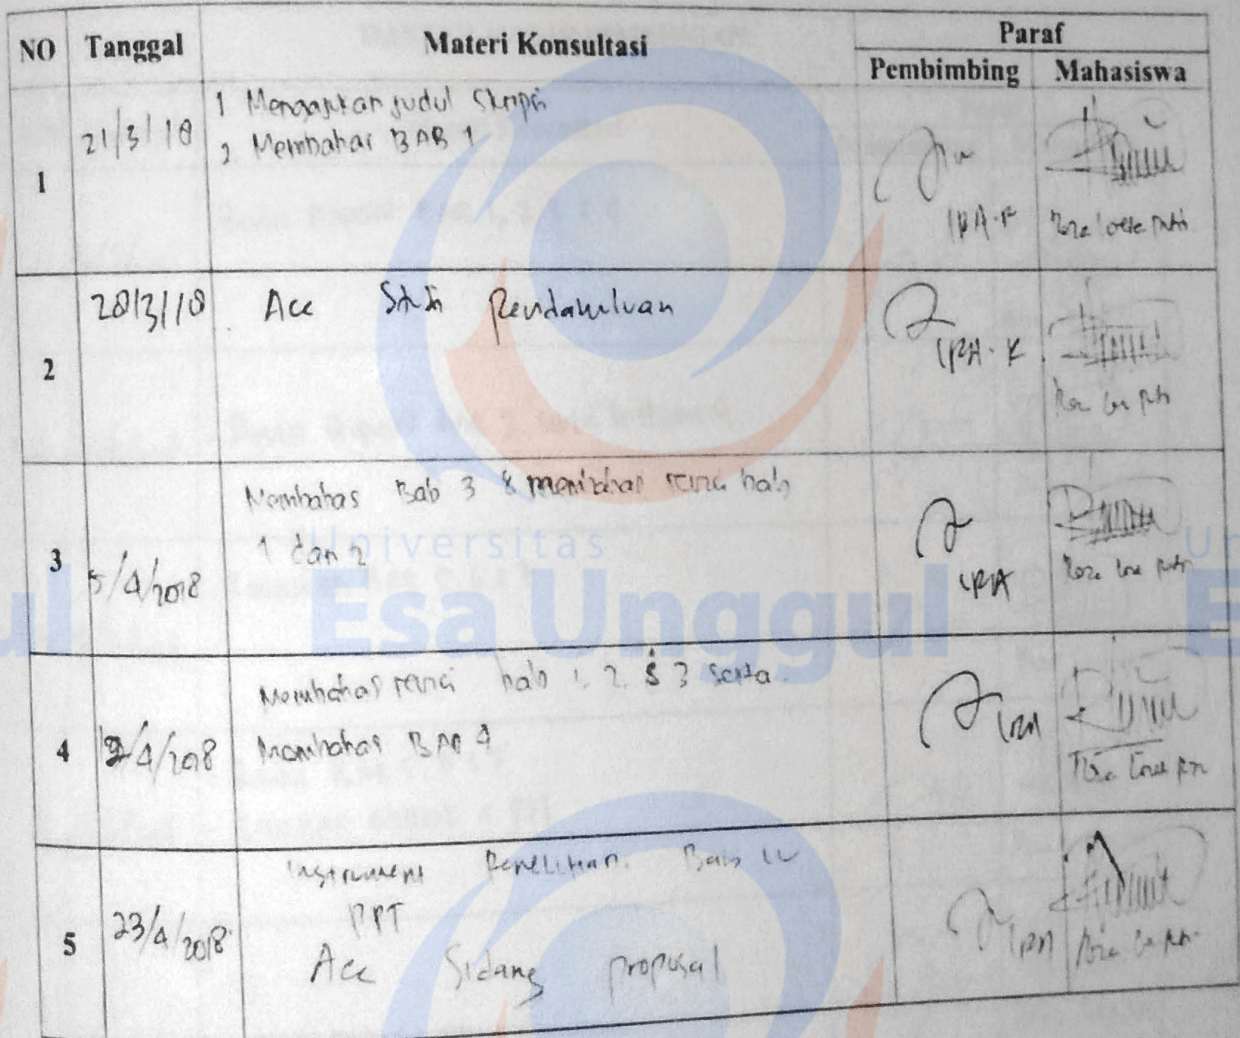 NO Tanggal Materi Konsultasi Paraf
Pembimbing Mahasiswa
1 21/3/18 1 Mengajukan judul Skripsi
2 Membahas BAB 1
IRA.K
2 28/3/18 Acc Studi Pendahuluan
IRA.K
3 5/4/2018 Membahas Bab 3 & membahas revisi bab
1 dan 2
IRA
4 /4/2018 Membahas revisi bab 1, 2, & 3 serta
Membahas BAB 4
IRA
5 23/4/2018 Instrument Penelitian. Bab IV
PPT
Acc Sidang proposal
IRA
Universitas
Esa Unggul